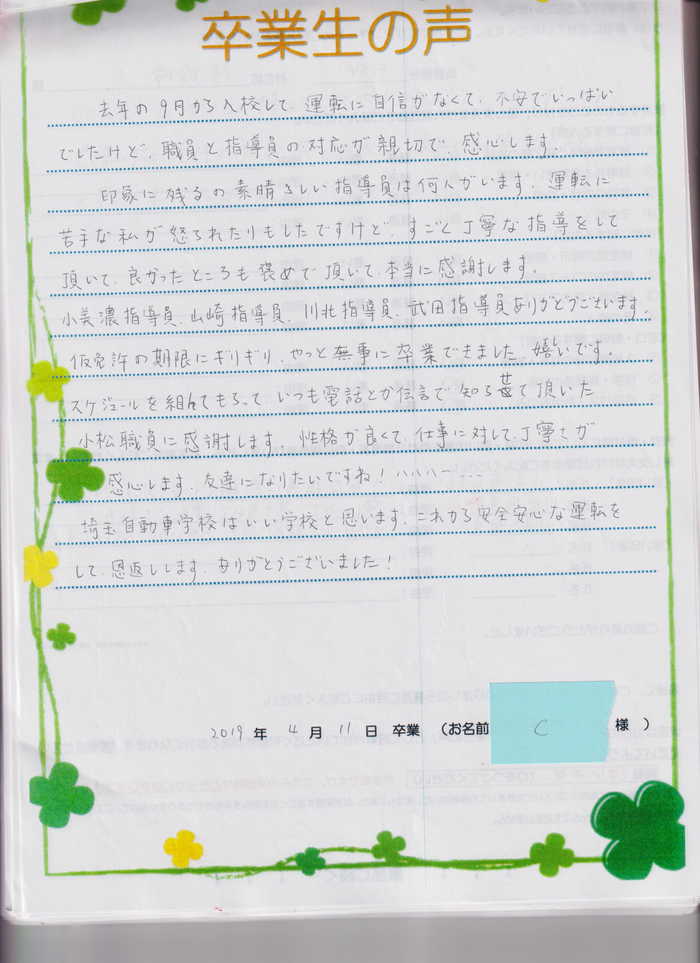 卒業生の声
去年の9月から入校して、運転に自信がなくて、不安でいっぱい
でしたけど、職員と指導員の対応が親切で、感心します。
印象に残るの素晴らしい指導員は何人がいます。運転に
苦手な私が怒られたりもしたですけど、すごく丁寧な指導をして
頂いて、良かったところも褒めて頂いて、本当に感謝します。
小美濃指導員、山崎指導員、川北指導員、武田指導員ありがとうございます。
仮免許の期限にギリギリ、やっと無事に卒業できました。嬉しいです。
スケジュールを組んでもらって いつも電話とか伝言で 知らせて頂いた
小松職員に感謝します。性格が良くて、仕事に対して、丁寧さが
感心します。友達になりたいですね!ハハハー...
埼玉自動車学校はいい学校と思います。これから安全安心な運転を
して、恩返しします。ありがとうございました!
2019 年 4 月 11 日 卒業 (お名前 C 様 )